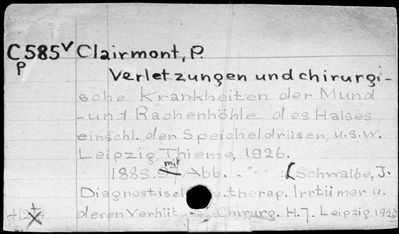 C585v Clairmont, P.
P
Verletzungen und chirurgi-
sche Krankheiten der Mund
-und Rachenhöhle des Halses,
einschl. der Speicheldrüsen, u.s.w.
Leipzig Thieme, 1926.
mit
Abb. (Schwalbe, J.
Diagnostisch u. therap. Irrtümer u.
deren Verhüt Chirurg. H. 7. Leipzig 1926